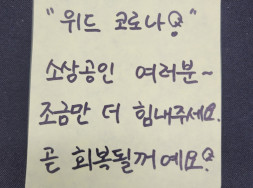 "위드 코로나"
소상공인 여러분~
조금만 더 힘내주세요.
곧 회복될꺼예요.